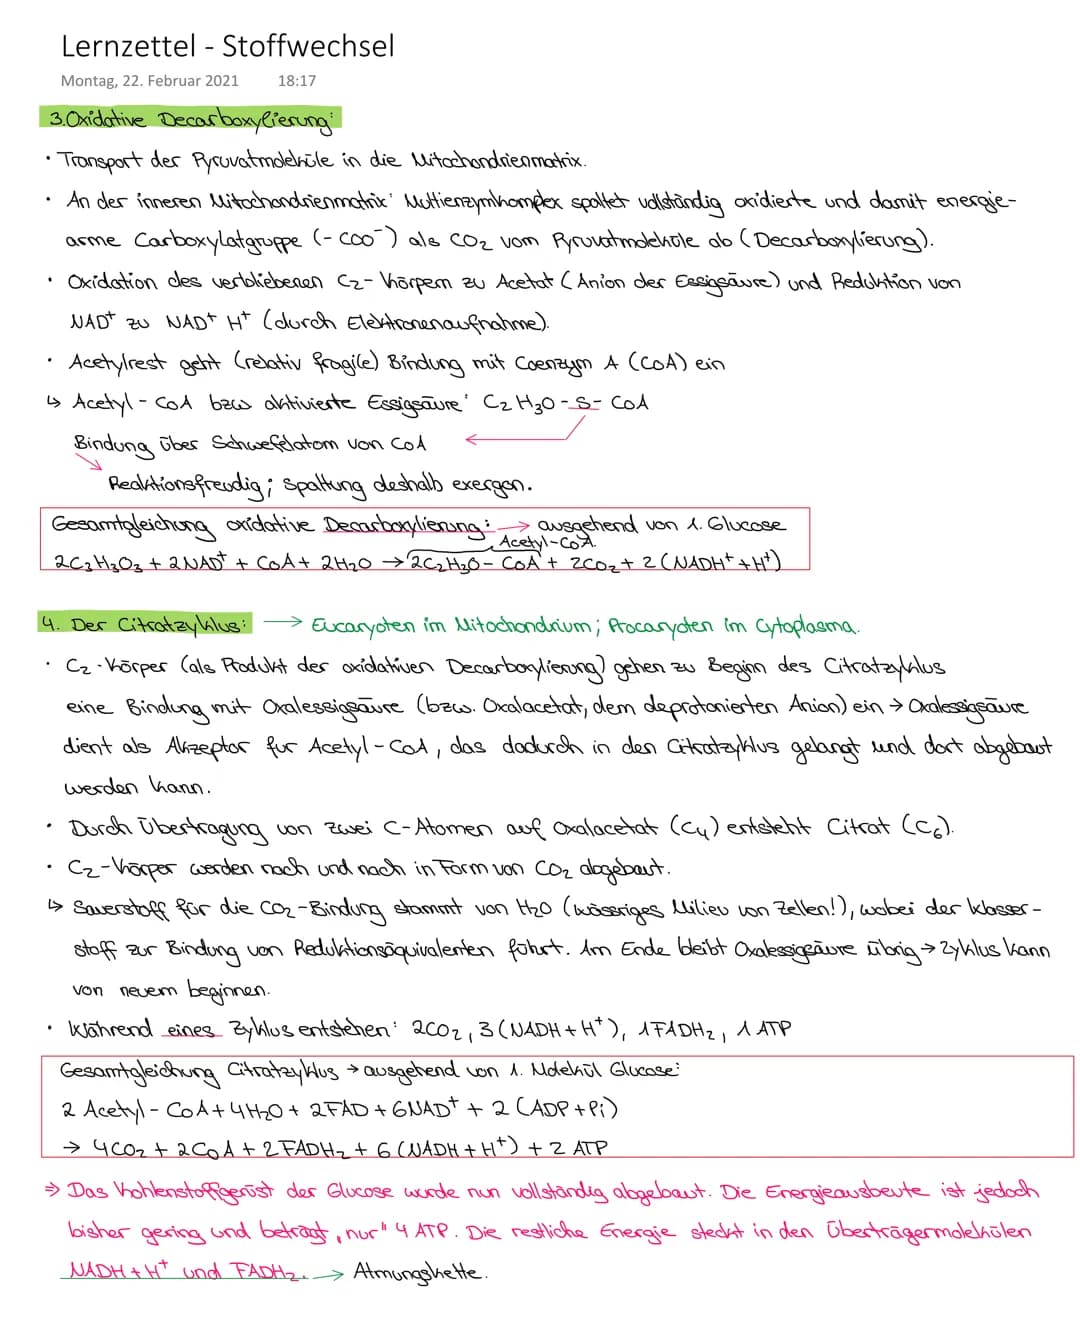 Lernzettel - Stoffwechsel
Montag, 22. Februar 2021 18:17
3.Oxidative Decarboxylierung:
• Transport der Pyruvatmoleküle in die Mitochondrienmatrix.
• An der inneren Mitochondrienmatrix: Multienzymkomplex spaltet vollständig oxidierte und damit energie-
arme Carboxylatgruppe (-COO⁻) als CO₂ vom Pyruvatmoleküle ab (Decarboxylierung).
• Oxidation des verbliebenen C₂-Körpern zu Acetat (Anion der Essigsäure) und Reduktion von
NAD⁺ zu NAD⁺ H⁺ (durch Elektronenaufnahme).
• Acetylrest geht (relativ fragile) Bindung mit Coenzym A (CoA) ein
↳ Acetyl-CoA bzw aktivierte Essigsäure: C₂H₃O-S-CoA
Bindung über Schwefelatom von CoA ←
Reaktionsfreudig; Spaltung deshalb exergon.
Gesamtgleichung oxidative Decarboxylierung: → ausgehend von 1. Glucose
Acetyl-CoA.
2C₃H₃O₃ + 2NAD⁺ + CoA + 2H₂O → 2C₂H₃O-CoA + 2CO₂ + 2(NADH⁺+H⁺)
4. Der Citratzyklus: → Eucaryoten im Mitochondrium; Procaryoten im Cytoplasma.
• C₂-Körper (als Produkt der oxidativen Decarboxylierung) gehen zu Beginn des Citratzyklus
eine Bindung mit Oxalessigsäure (bzw. Oxalacetat, dem deprotonierten Anion) ein → Oxalessigsäure
dient als Akzeptor für Acetyl-CoA, das dadurch in den Citratzyklus gelangt und dort abgebaut
werden kann.
• Durch Übertragung von zwei C-Atomen auf Oxalacetat (C₄) entsteht Citrat (C₆).
• C₂-Körper werden nach und nach in Form von CO₂ abgebaut.
↳ Sauerstoff für die CO₂-Bindung stammt von H₂O (wässriges Milieu von Zellen!), wobei der Wasser-
stoff zur Bindung von Reduktionsäquivalenten führt. Am Ende bleibt Oxalessigsäure übrig → Zyklus kann
von neuem beginnen.
• Während eines Zyklus entstehen: 2CO₂, 3(NADH+H⁺), 1FADH₂, 1 ATP
Gesamtgleichung Citratzyklus → ausgehend von 1. Molekül Glucose:
2 Acetyl-CoA + 4H₂O + 2FAD + 6NAD⁺ + 2(ADP+Pi)
→ 4CO₂ + 2CoA + 2FADH₂ + 6(NADH+H⁺) + 2 ATP
⇒ Das Kohlenstoffgerüst der Glucose wurde nun vollständig abgebaut. Die Energieausbeute ist jedoch
bisher gering und beträgt „nur" 4 ATP. Die restliche Energie steckt in den Überträgermolekülen
NADH+H⁺ und FADH₂. → Atmungskette.